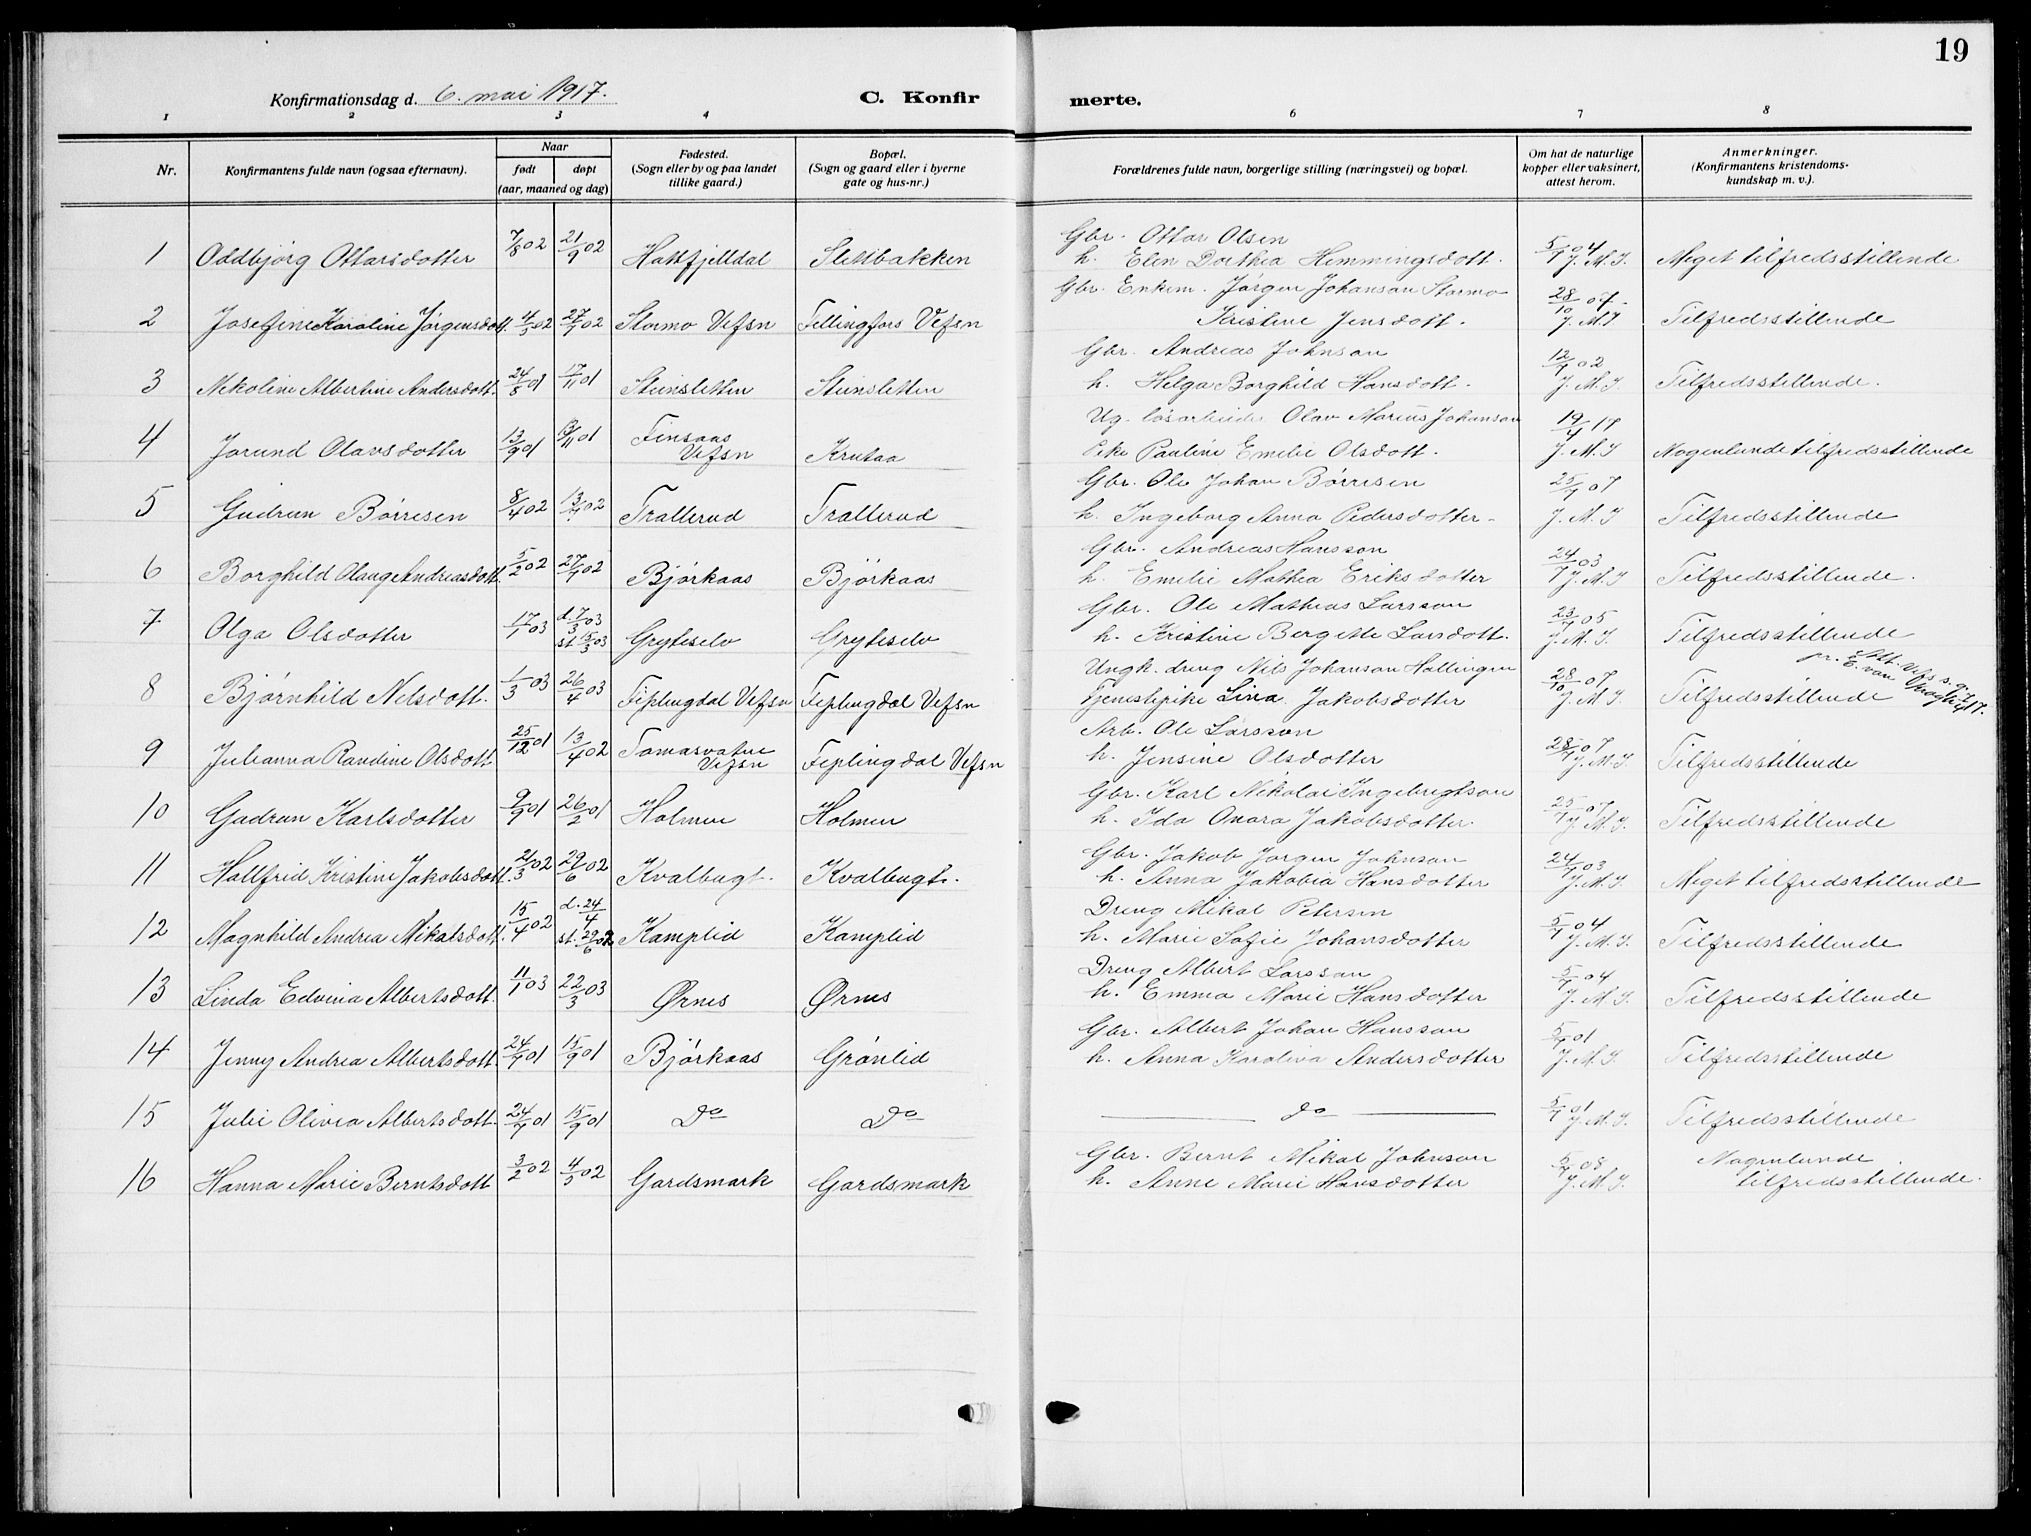 19
Konfirmationsdag d. 6. mai 1917.
C. Konfirmerte.
1 2 3 4 5 6 7 8
Nr.
Konfirmantens fulde navn (ogsaa efternavn).
Naar
født døpt
(aar, maaned og dag)
Fødested.
(Sogn eller by og paa landet
tillike gaard.)
Bopæl.
(Sogn og gaard eller i byerne
gate og hus-nr.)
Forældrenes fulde navn, borgerlige stilling (næringsvei) og bopæl.
Om hat de naturlige
kopper eller vaksinert,
attest herom.
Anmerkninger.
(Konfirmantens kristendoms-
kundskap m. v.).
Gbr. Ottar Olsen
1 Oddbjørg Ottarsdotter 7/8 02 21/9 02 Hattfjelldal Slettbakken h. Elen Dorthea Hemmingsdott. 5/7 04 J. M. J. Meget tilfredsstillende
Gbr. Enkem. Jørgen Johanson Stormo
2 Josefine Karoline Jørgensdott. 4/3 02 27/7 02 Stormo Vefsn Fellingfors Vefsn Kristine Jensdott. 28/10 07 J. M. J Tilfredsstillende
Gbr. Andreas Johnson
3 Nikoline Albertine Andersdott. 24/8 01 17/11 01 Steinsletten Steinsletten h. Helga Borghild Hansdott. 12/7 02 J. M. J Tilfredsstillende.
Ug. løsarbeider Olav Marius Johanson
4 Jorund Olavsdotter 13/9 01 /11 01 Finsaas Vefsn Krutaa Pike Pauline Emelie Olsdott. 19/4 17 J. M. J Nogenlunde tilfredsstillende
Gbr. Ole Johan Børresen
5 Gudrun Børresen 8/4 02 13/7 02 Trallerud Trallerud h. Ingeborg Anna Pedersdotter 25/7 07 J. M. J Tilfredsstillende
Gbr. Andreas Hansson
6 Borghild Olauge Andreasdott. 5/2 02 27/7 02 Bjørkaas Bjørkaas h. Emelie Mathea Eriksdotter 24/7 03 J. M. J Tilfredsstillende.
Gbr. Ole Mathias Larsson
7 Olga Olsdotter 17/1 03 d. 7/3 03 st. 15/3 03 Gryteselv Gryteselv h. Kristine Bergette Larsdott. 23/7 05 J. M. J. Tilfredsstillende
Ungk. dreng Nils Johanson Hallingen
8 Bjørnhild Nelsdott. 1/3 03 26/4 03 Fiplingdal Vefsn Fiplingdal Vefsn Tjenestepike Lina Jakobsdotter 28/10 07 J. M. J. Tilfredsstillende
Arb. Ole Larsson
9 Julianna Randine Olsdott 25/12 01 13/4 02 Tomasvatne Vefsn Fiplingdal Vefsn h. Jensine Olsdotter 28/7 07 J. M. J. Tilfredsstillende
Gbr. Karl Nikolai Ingebrigtson
10 Gudrun Karlsdotter 9/9 01 26/2 01 Holmen Holmen h. Ida Onora Jakobsdotter. 25/7 07 J. M. J. Tilfredsstillende
Gbr. Jakob Jørgen Johnson
11 Hallfrid Kristine Jakobsdott. 21/3 02 29/6 02 Kvalbugt. Kvalbugt. h. Anna Jakobia Hansdotter 24/7 03 J. M. J. Meget tilfredsstillende
Dreng Mikal Petersen
12 Magnhild Andrea Mikalsdott. 15/4 02 d. 24/4 st. 29/6 02 Kamplid Kamplid h. Marie Sofie Johansdotter 5/7 04 J. M. J. Tilfredsstillende
Dreng Albert Larsson
13 Linda Edvina Albertsdott. 11/1 03 22/3 03 Ørnes Ørnes h. Emma Marie Hansdotter 5/7 04 J. M. J. Tilfredsstillende
Gbr. Albert Johan Hansson
14 Jenny Andrea Albertsdott. 24/7 01 15/9 01 Bjørkaas Grønlid h. Anna Karoliva Andersdotter 5/7 01 J. M. J. Tilfredsstillende
15 Julie Olivia Albertsdott. 24/7 01 15/9 01 Do Do do 5/7 01 J. M. J. Tilfredsstillende
Gbr. Bernt Mikal Johnson
16 Hanna Marie Berntsdott 3/2 02 4/5 02 Gardsmark Gardsmark h. Anne Marie Hansdotter 5/7 08 J. M. J. Nogenlunde tilfredsstillende.